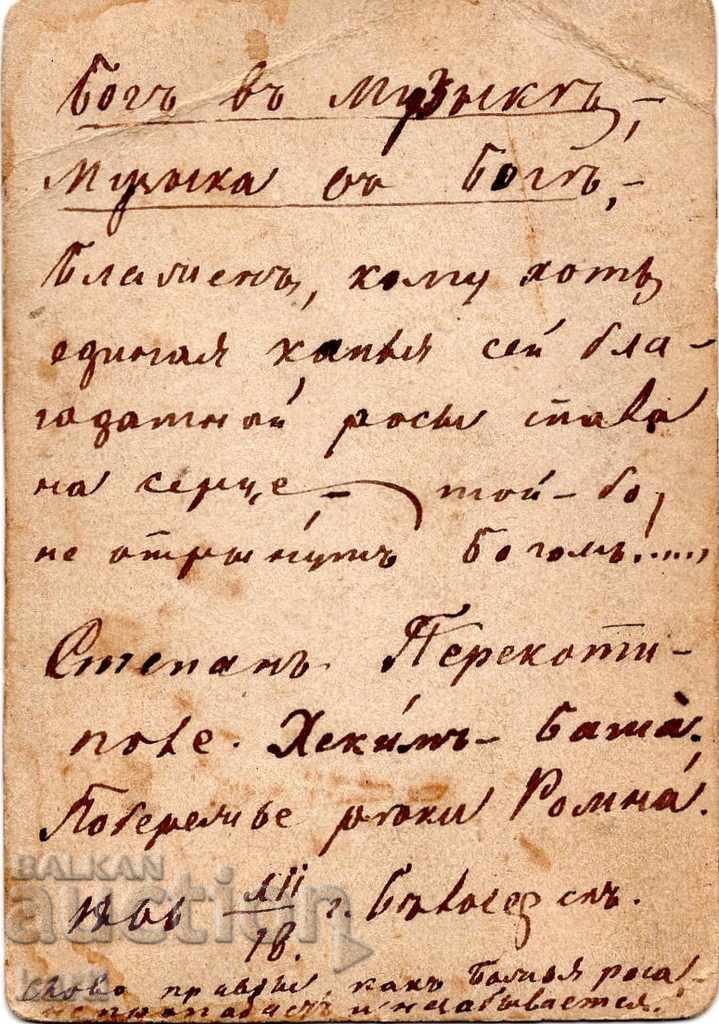 Богъ въ Музыкѣ,-
Музыка въ Богѣ,-
Блаженъ, кому хоть
единая капья сей бла-
годатной росы пала
на серце,- той-бо,
не отрынутъ Богомъ.....,
Степанъ Перекоти-
поле. Хекимъ-Баша.
Побережье рѣки Ромна.
1906 XII/18. г.
Слово правды, какъ Божья роса,-
не пропадаетъ и незабывается.
BALKAN
auction